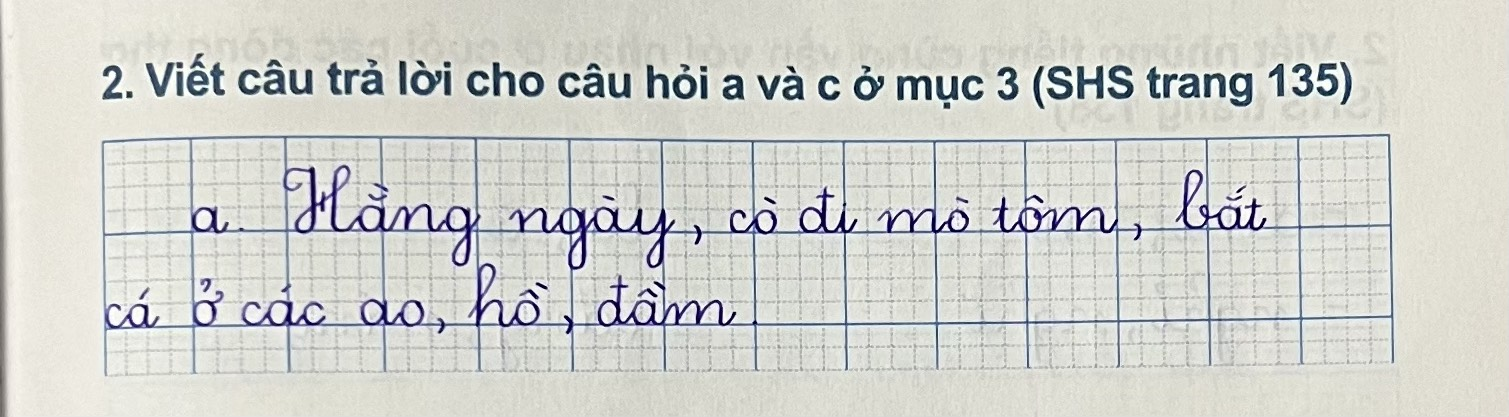 2. Viết câu trả lời cho câu hỏi a và c ở mục 3 (SHS trang 135)
a. Hằng ngày, cò đi mò tôm, bắt
cá ở các ao, hồ, đầm